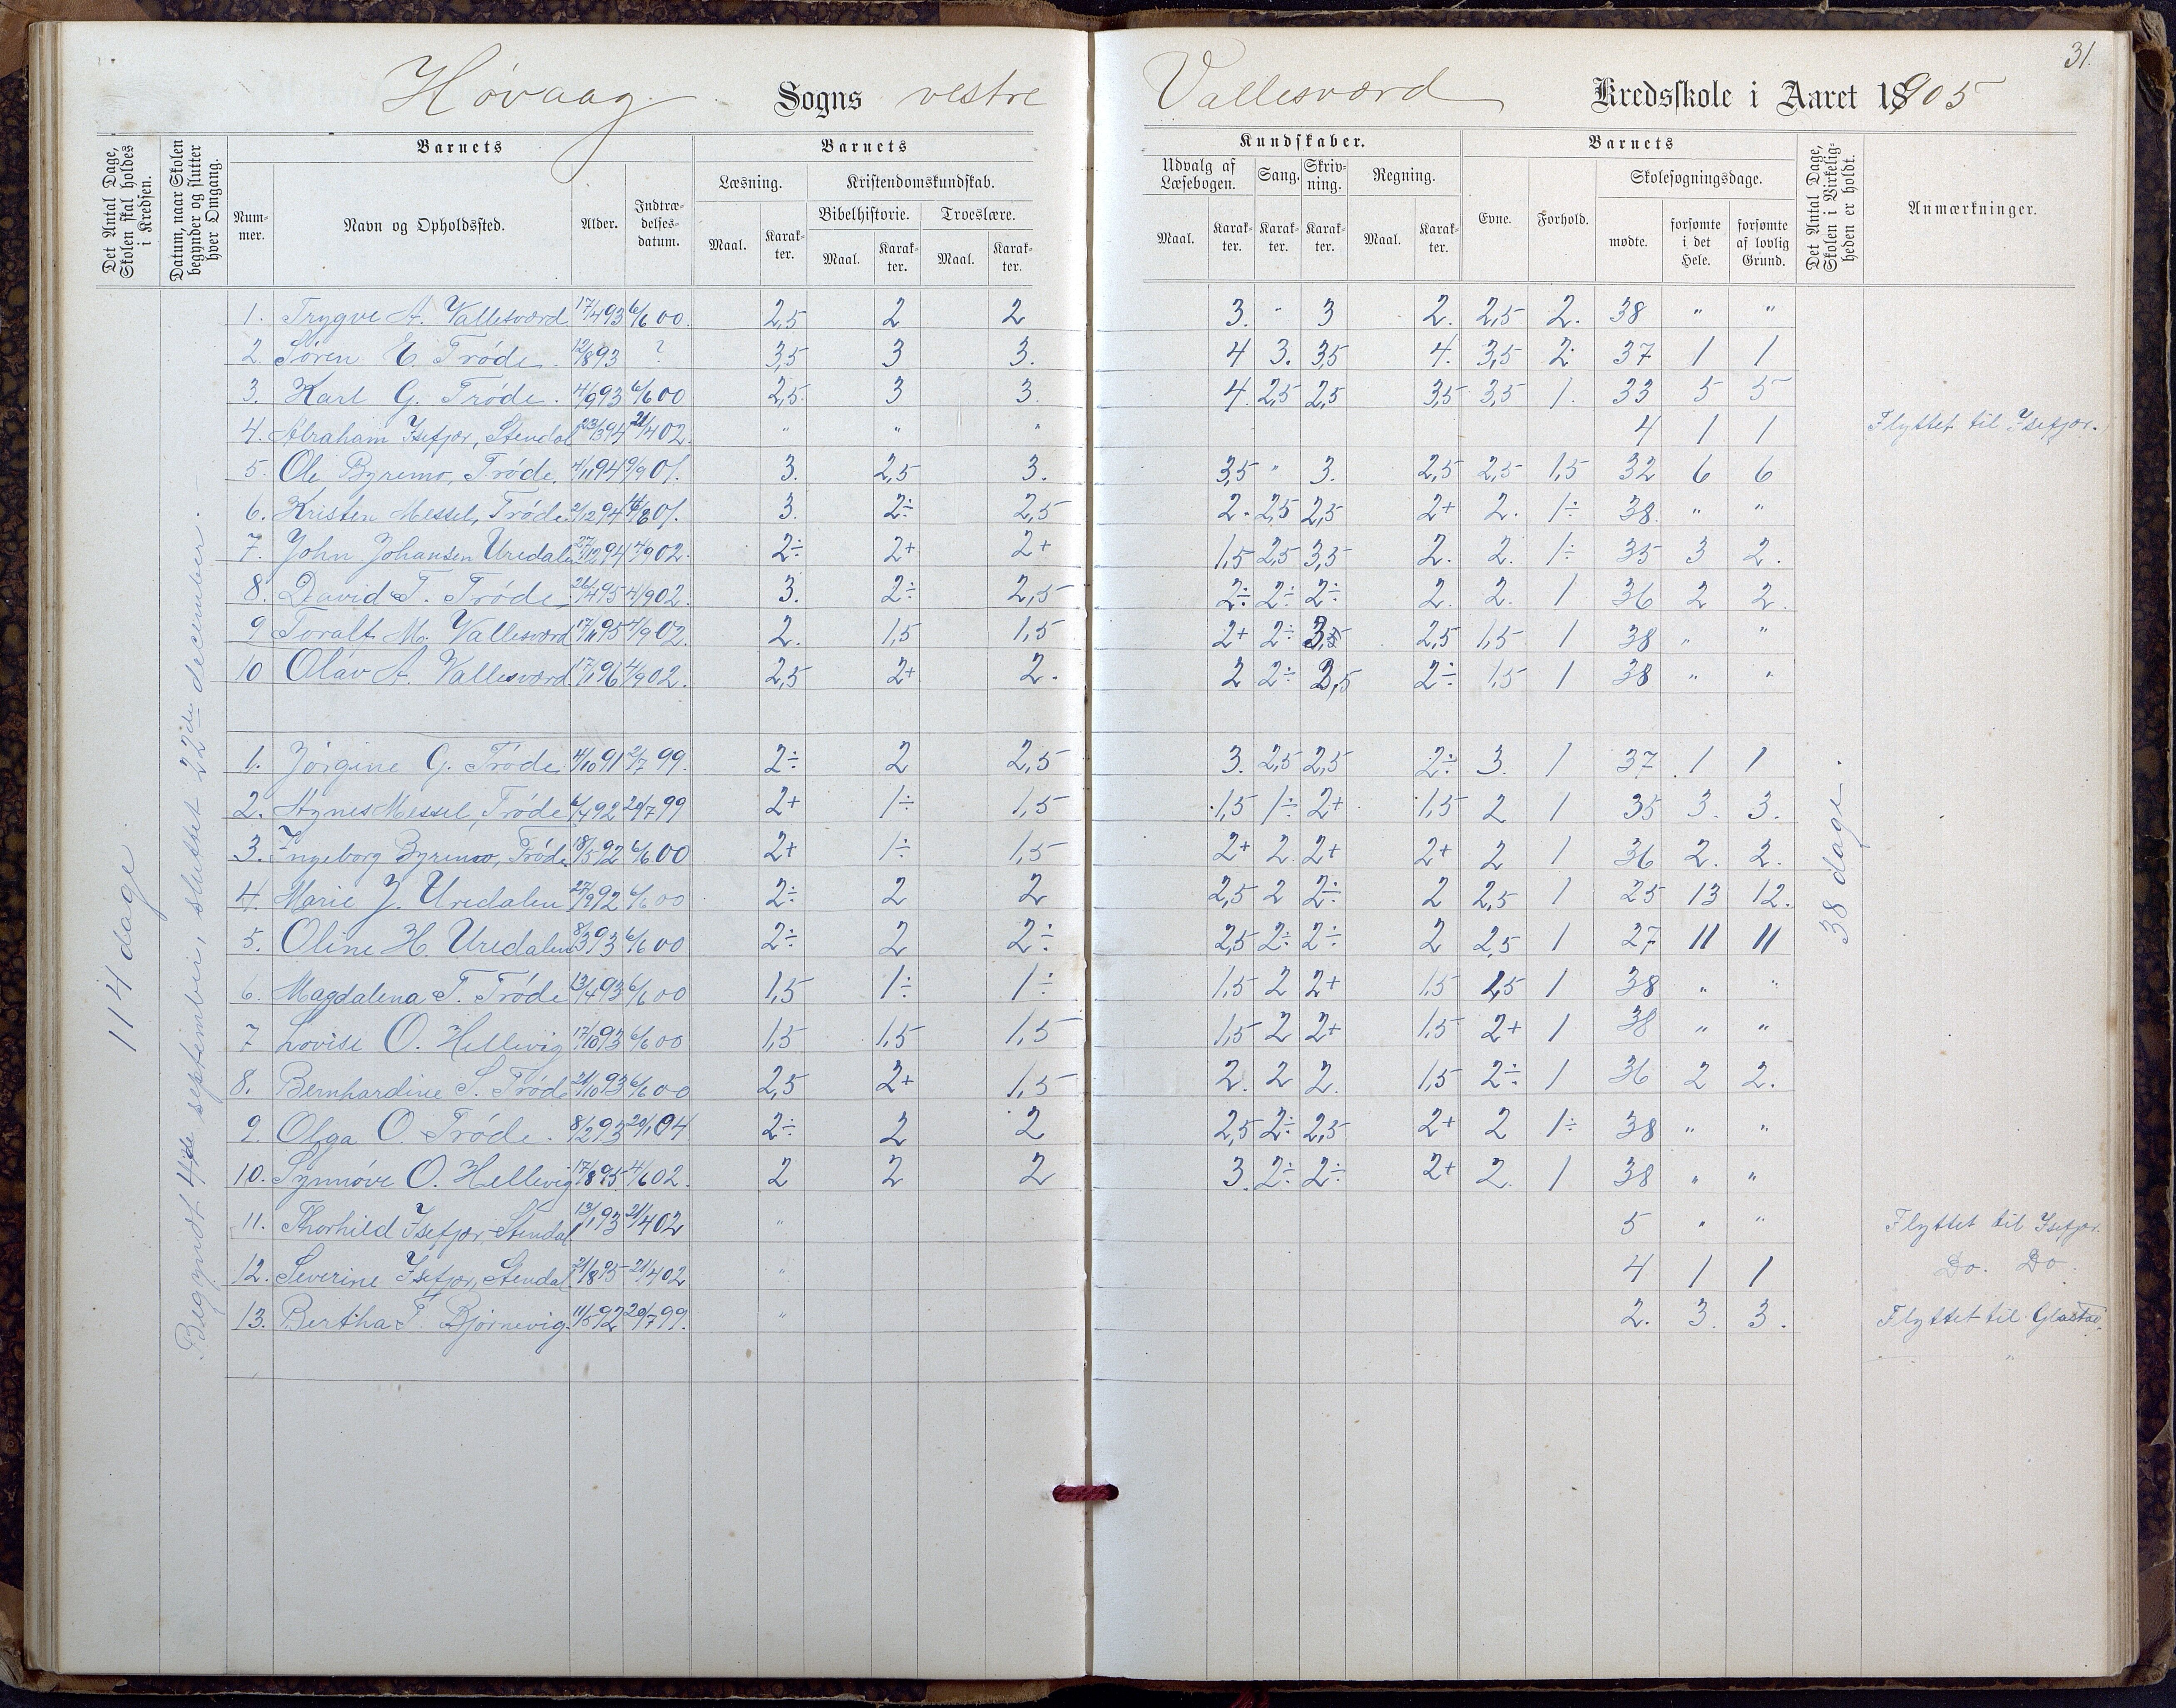 31.
Høvaag Sogns vestre Vallesværd Kredsskole i Aaret 18905
Det Antal Dage, Skolen skal holdes i Kredsen.
Datum, naar Skolen begynder og slutter hver Omgang.
Barnets
Barnets
Kundskaber.
Barnets
Det Antal Dage, Skolen i Virkeligheden er holdt.
Anmærkninger.
Nummer.
Navn og Opholdssted.
Alder.
Indtrædelsesdatum.
Læsning.
Kristendomskundskab.
Bibelhistorie.
Troeslære.
Udvalg af Læsebogen.
Sang.
Skrivning.
Regning.
Evne.
Forhold.
Skolesøgningsdage.
Maal. Karakter. Maal. Karakter. Maal. Karakter. Maal. Karakter. Karakter. Karakter. Maal. Karakter.
mødte. forsømte i det Hele. forsømte af lovlig Grund.
114 dage
Begyndt 4de september, sluttet 22de december.
38 dage.
1. Trygve A. Vallesværd 17/4 93 6/6 00. 2,5 2 2 3. " 3 2. 2,5 2. 38 " "
2 Søren E. Trøde. 12/8 93 ? 3,5 3 3. 4 3. 3,5 4. 3,5 2. 37 1 1
3. Karl G. Trøde. 4/9 93 6/6 00 2,5. 3 3. 4. 2,5 2,5 3,5 3,5 1. 33 5 5
4. Abraham Isefjær, Stendal 23/3 94 21/4 02. " " " 4 1 1 Flyttet til Isefjær.
5. Ole Byremo, Trøde. 4/11 94 9/9 01. 3. 2,5 3. 3,5 " 3. 2,5 2,5 1,5 32 6 6
6. Kristen Messel, Trøde 2/12 94 4/6 01. 3. 2÷ 2,5 2. 2,5 2,5 2+ 2. 1÷ 38. " "
7. John Johansen Uredalen 27/12 94 4/9 02. 2÷ 2+ 2+ 1,5 2,5 3,5 2. 2. 1÷ 35 3 2.
8. David T. Trøde 26/4 95 4/9 02. 3. 2÷ 2,5 2÷ 2÷ 2÷ 2. 2. 1 36 2 2.
9 Toralf M. Vallesværd 17/11 95 4/9 02. 2. 1,5 1,5 2+ 2÷ 3,5 2,5 1,5 1 38 " "
10 Olav A. Vallesværd 17/1 96 4/9 02. 2,5 2+ 2. 2 2÷ 3,5 2÷ 1,5 1 38 " "
1. Jørgine G. Trøde 4/10 91 2/7 99. 2÷ 2 2,5 3. 2,5 2,5 2÷ 3. 1 37 1 1
2. Agnes Messel, Trøde 6/4 92 20/7 99 2+ 1÷ 1,5 1,5 1÷ 2+ 1,5 2 1 35 3. 3.
3. Ingeborg Byremo, Trøde 18/5 92 6/6 00 2+ 1÷ 1,5 2+ 2. 2+ 2+ 2 1 36 2. 2.
4. Marie J. Uredalen 27/9 92 6/6 00 2÷ 2 2 2,5 2 2÷ 2 2,5 1 25 13 12.
5. Oline H. Uredalen 8/3 93 6/6 00 2÷ 2 2÷ 2,5 2÷ 2÷ 2 2,5 1 27 11 11
6. Magdalena T. Trøde 13/4 93 6/6 00 1,5 1÷ 1÷ 1,5 2 2+ 1,5 1,5 1 38 " "
7 Lovise O. Hellevig 17/10 93 6/6 00 1,5 1,5 1,5 1,5 2 2+ 1,5 2+ 1 38 " "
8. Bernhardine S. Trøde 21/10 93 6/6 00 2,5 2+ 1,5 2. 2 2. 1,5 2÷ 1 36 2 2.
9. Olga O. Trøde. 8/2 93 20/1 04 2÷ 2 2 2,5 2÷ 2,5 2+ 2 1÷ 38 " "
10. Synnøve O. Hellevig 17/8 95 4/6 02. 2 2 2 3. 2÷ 2÷ 2+ 2. 1 38 " "
11. Thorhild Isefjær, Stendal 13/1 93 21/4 02 " 5 " " Flyttet til Isefjær.
12. Severine Isefjær, Stendal 21/8 95 21/4 02 " 4 1 1 Do. Do.
13. Bertha T. Bjørnevig. 11/5 92 20/7 99. " 2. 3. 3. Flyttet til Glastad.